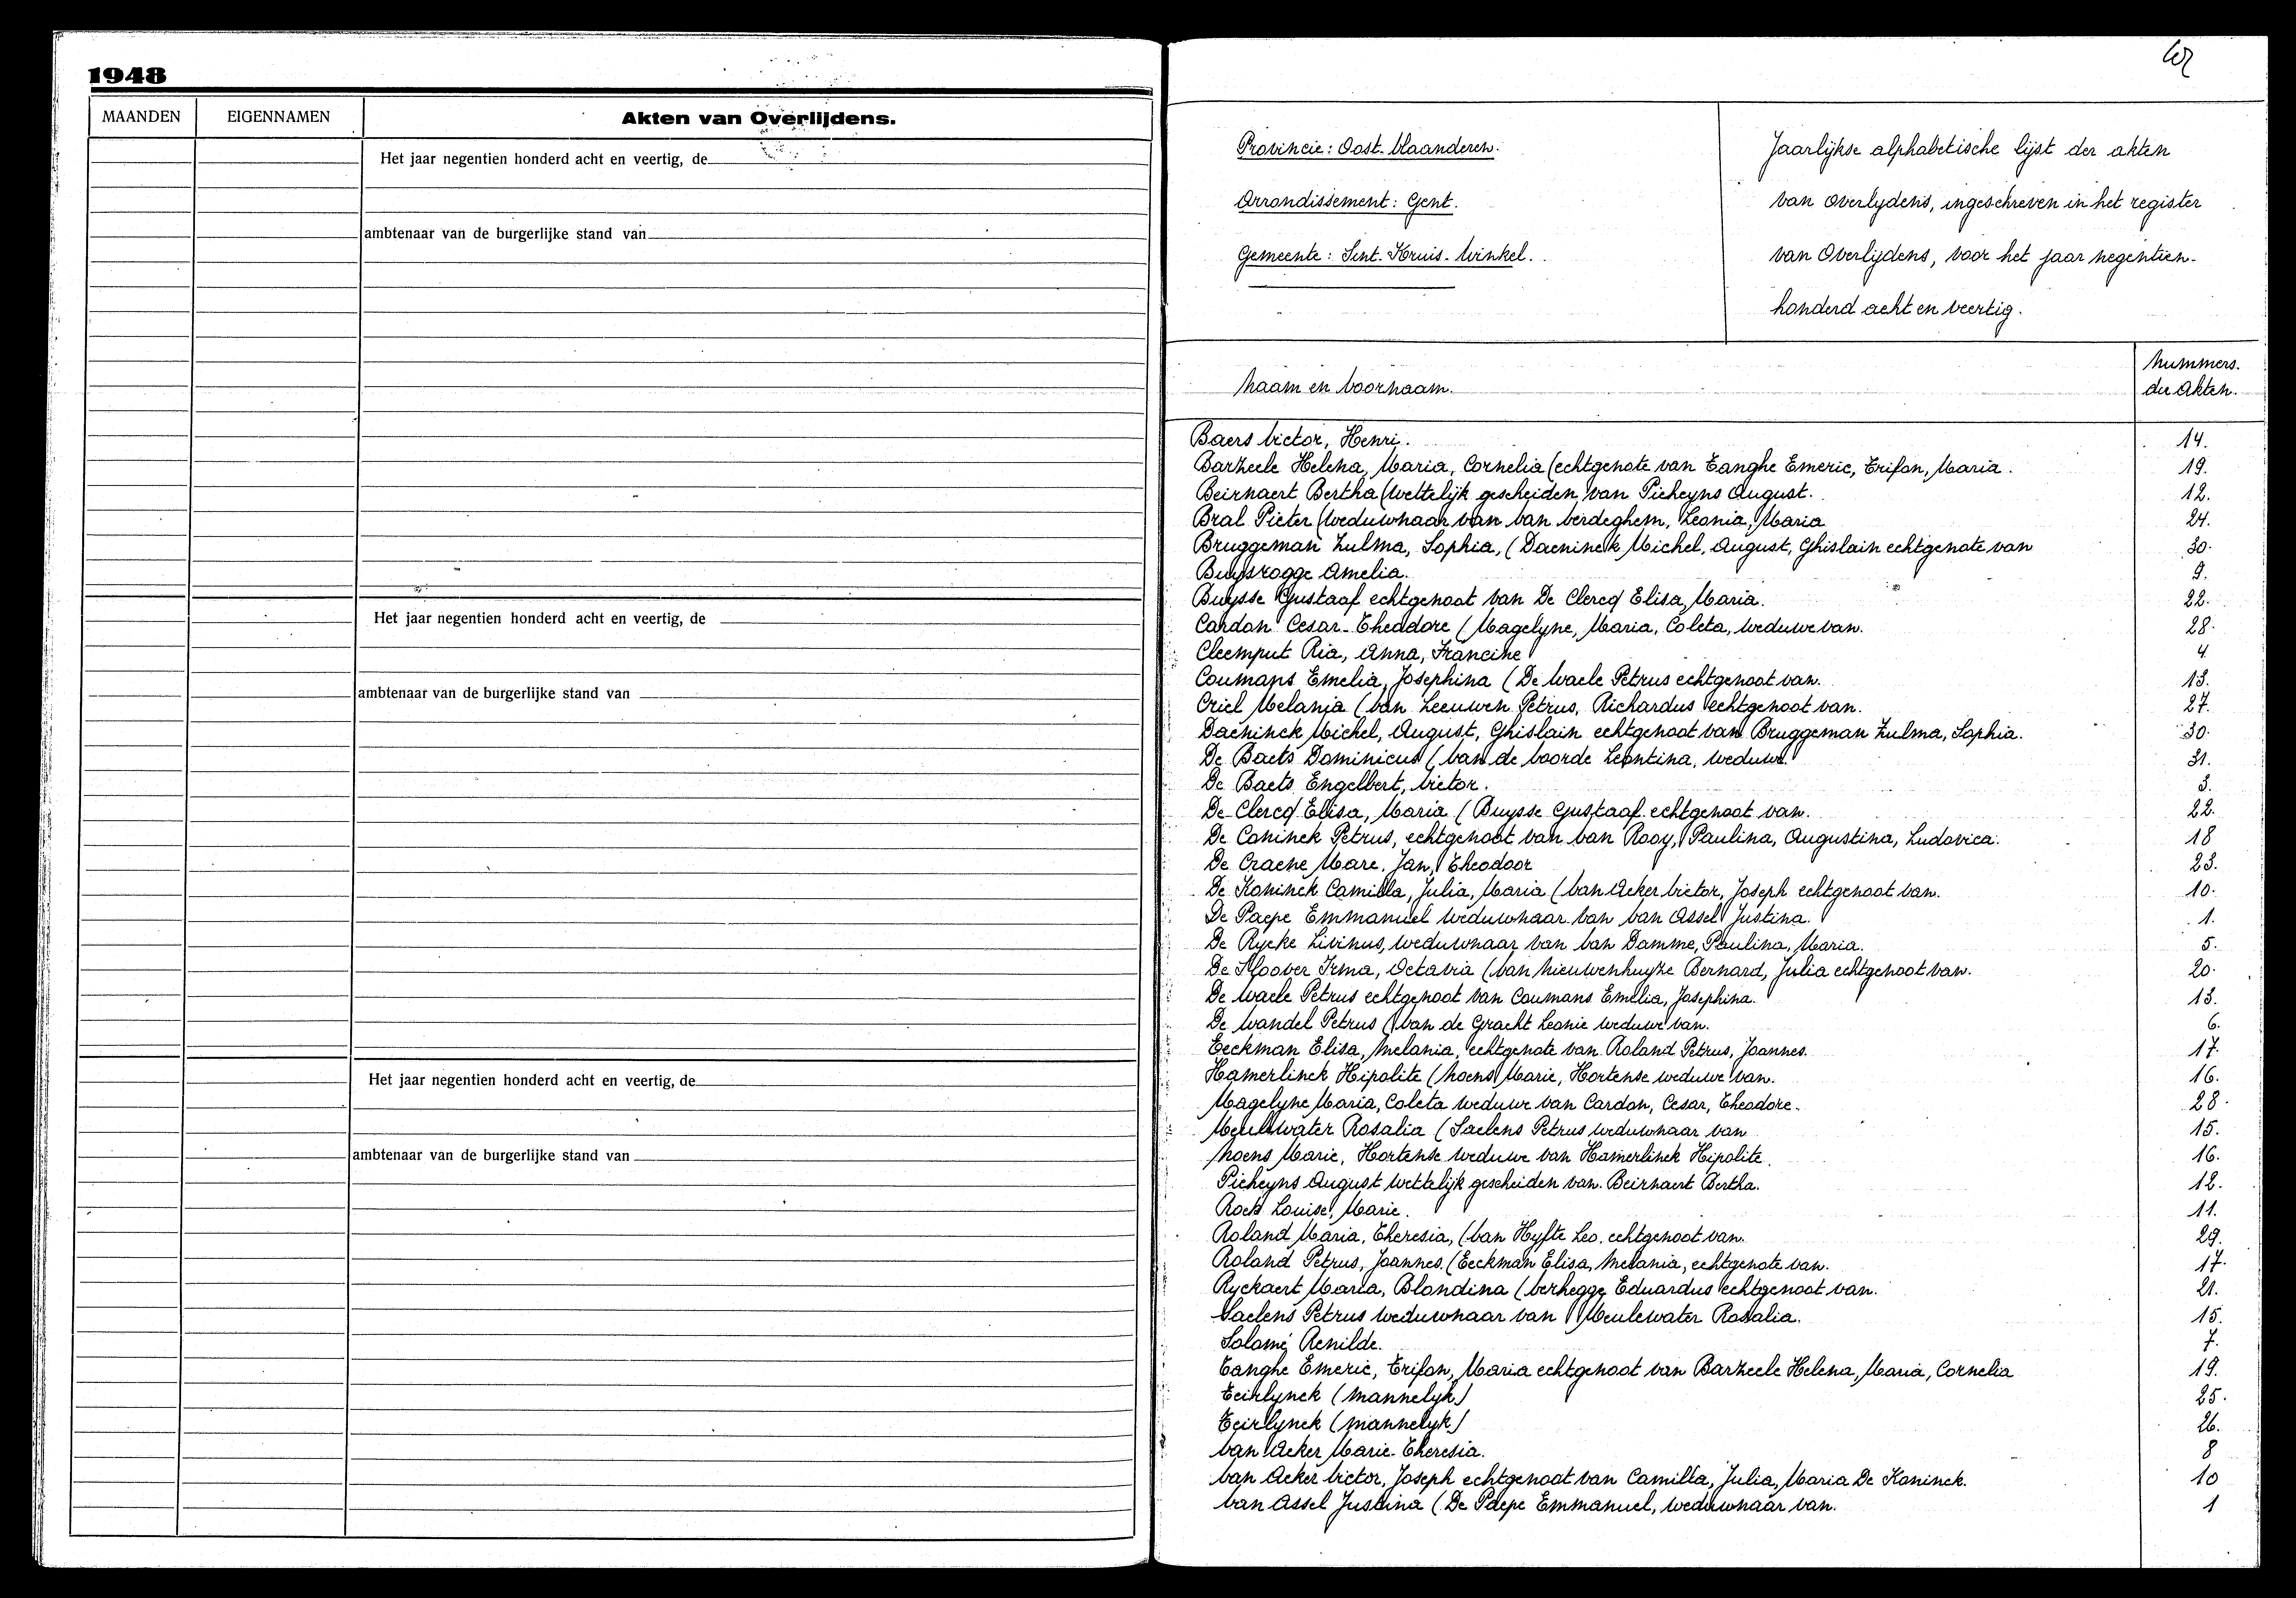 1948
MAANDEN
EIGENNAMEN
Akten van Overlijdens.
Het jaar negentien honderd acht en veertig, de
ambtenaar van de burgerlijke stand van
Het jaar negentien honderd acht en veertig, de
ambtenaar van de burgerlijke stand van
Het jaar negentien honderd acht en veertig, de
ambtenaar van de burgerlijke stand van
Provincie: Oost-Vlaanderen.
Arrondissement: Gent.
Gemeente: Sint-Kruis-Winkel.
Jaarlijkse alphabetische lijst der akten
van overlydens, ingeschreven in het register
van Overlijdens, voor het jaar negentien-
honderd acht en veertig.
Naam en Voornaam.
Nummers.
der Akten.
Baers Victor, Henri. 14.
Barzeele Helena, Maria, Cornelia (echtgenote van Tanghe Emeric, Trifon, Maria. 19.
Beirnaert Bertha (Wettelijk gescheiden van Picheyns August. 12.
Bral Pieter (Weduwnaar van Van Verdeghem, Leonia, Maria 24.
Bruggeman Zulma, Sophia, (Daeninck Michel, August, Ghislain echtgenote van 30.
Buysrogge Amelia. 9.
Buysse Gustaaf echtgenoot van De Clercq Elisa, Maria. 22.
Cardon Cesar-Theodore (Magelyne, Maria, Coleta, Weduwe van. 28.
Cleemput Ria, Anna, Francine 4.
Coumans Emelia, Josephina (De Waele Petrus echtgenoot van. 13.
Criel Melania (Van Leeuwen Petrus, Richardus echtgenoot van. 27.
Daeninck Michel, August, Ghislain echtgenoot van Bruggeman Zulma, Sophia. 30.
De Baets Dominicus (Van de Voorde Leontina, Weduwe. 31.
De Baets Engelbert, Victor. 3.
De Clercq Elisa, Maria (Buysse Gustaaf echtgenoot van. 22.
De Coninck Petrus, echtgenoot van Van Rooy, Paulina, Augustina, Ludovica. 18
De Craene Marc, Jan, Theodoor 23.
De Koninck Camilla, Julia, Maria (Van Acker Victor, Joseph echtgenoot van. 10.
De Paepe Emmanuel Weduwnaar van Van Assel Justina. 1.
De Rycke Livinus, Weduwnaar van Van Damme, Paulina, Maria. 5.
De Sloover Irma, Octavia (Van Nieuwenhuyze Bernard, Julia echtgenoot van. 20.
De Waele Petrus echtgenoot van Coumans Emelia, Josephina. 13.
De Wandel Petrus (Van de Gracht Leonie Weduwe van. 6.
Eeckman Elisa, Melania, echtgenote van Roland Petrus, Joannes. 17.
Hamerlinck Hipolite (Noens Marie, Hortense Weduwe van. 16.
Magelyne Maria, Coleta Weduwe van Cardon, Cesar, Theodore. 28.
Meulewater Rosalia (Saelens Petrus Weduwnaar van 15.
Noens Marie, Hortense Weduwe van Hamerlinck Hipolite. 16.
Picheyns August Wettelijk gescheiden van. Beirnaert Bertha. 12.
Roels Louise, Marie. 11.
Roland Maria, Theresia, (Van Hyfte Leo. echtgenoot van. 29.
Roland Petrus, Joannes. (Eeckman Elisa, Melania, echtgenote van. 17.
Ryckaert Maria, Blondina (Verhegge Eduardus echtgenoot van. 21.
Saelens Petrus Weduwnaar van Meulewater Rosalia. 15.
Salomé Renilde. 7.
Tanghe Emeric, Trifon, Maria echtgenoot van Barzeele Helena, Maria, Cornelia 19.
Teirlynck (Mannelyk) 25.
Teirlynck (Mannelyk) 26.
Van Acker Marie-Theresia. 8
Van Acker Victor, Joseph echtgenoot van Camilla, Julia, Maria De Koninck. 10
Van Assel Justina (De Paepe Emmanuel, Weduwnaar van. 1